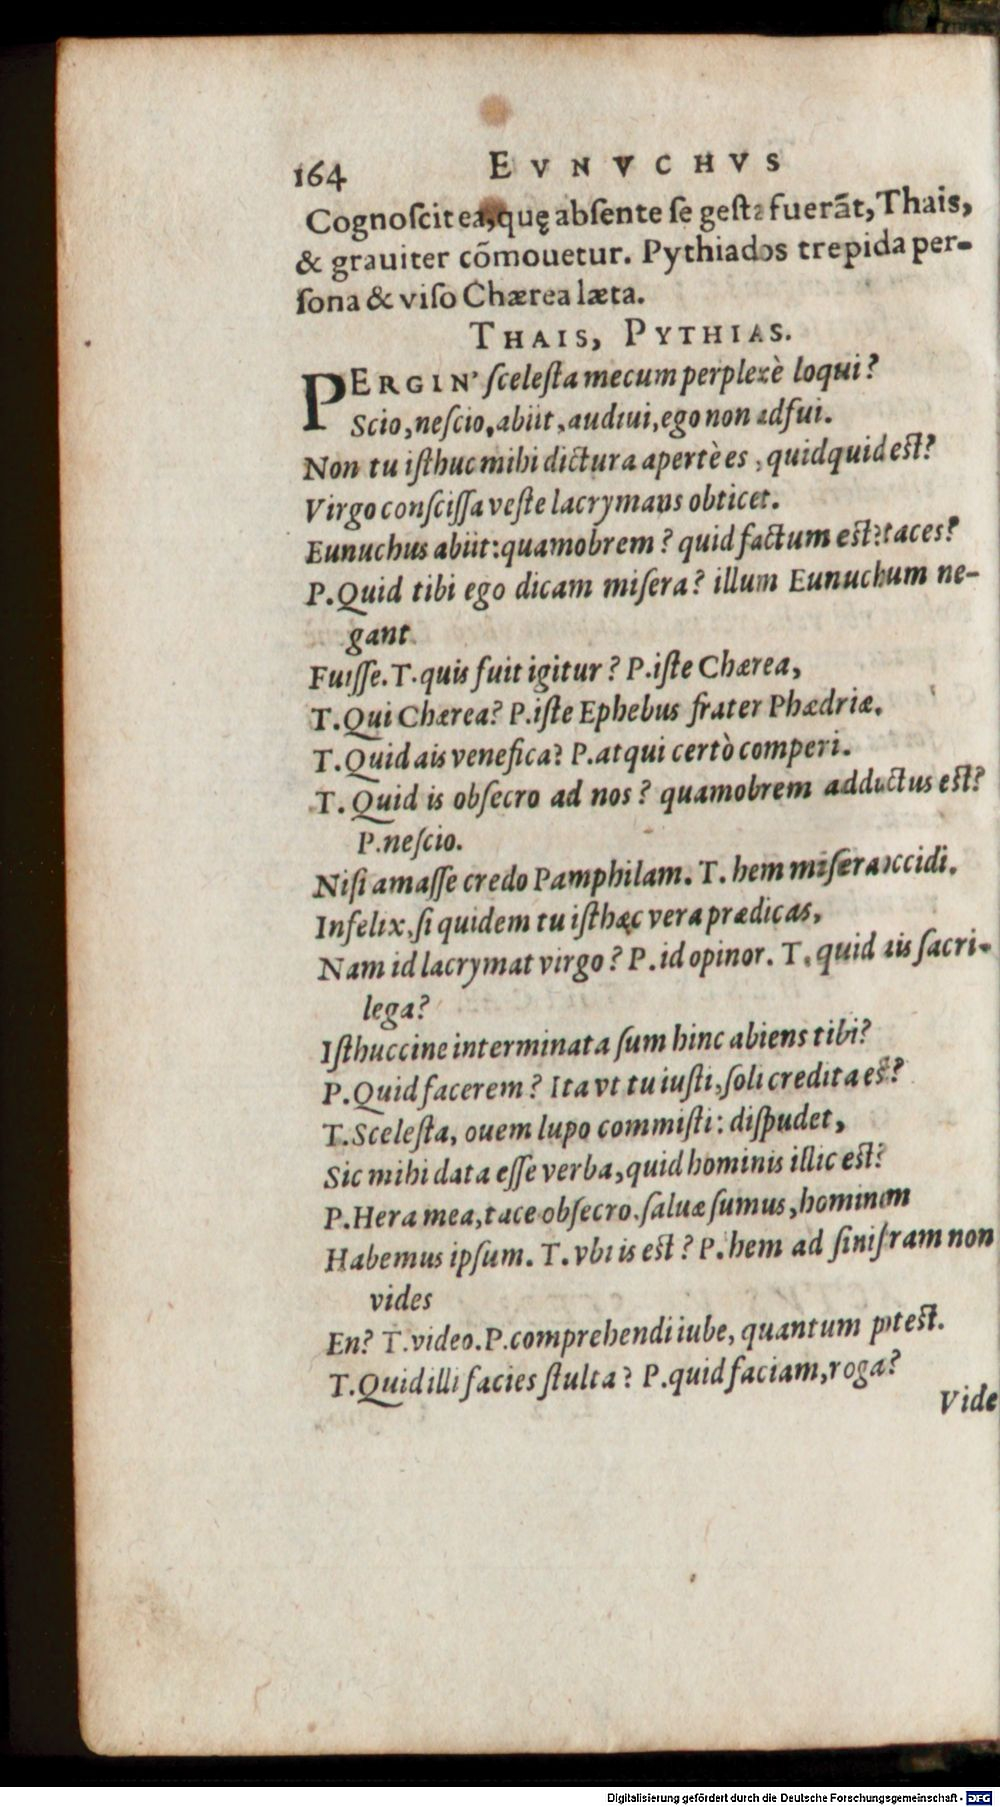 164 EVNVCHVS
Cognoſcit ea, quę abſente ſe geſta fuerãt, Thais,
& grauiter cõmouetur. Pythiados trepida per-
ſona & viſo Chærea læta.
THAIS, PYTHIAS.
PERGIN' ſceleſta mecum perplexè loqui?
Scio, neſcio, abiit, audiui, ego non adfui.
Non tu iſthuc mihi dictura apertè es, quidquid est?
Virgo conſciſſa veſte lacrymans obticet.
Eunuchus abiit: quamobrem? quid factum est? taces?
P. Quid tibi ego dicam miſera? illum Eunuchum ne-
gant
Fuiſſe. T. quis fuit igitur? P. iſte Chærea,
T. Qui Chærea? P. iſte Ephebus frater Phædriæ.
T. Quid ais venefica? P. atqui certò comperi.
T. Quid is obſecro ad nos? quamobrem adductus est?
P. neſcio.
Niſi amaſſe credo Pamphilam. T. hem miſera occidi.
Infelix, ſi quidem tu iſthæc vera prædicas,
Nam id lacrymat virgo? P. id opinor. T. quid ais ſacri-
lega?
Iſthuccine interminata ſum hinc abiens tibi?
P. Quid facerem? Ita vt tu iuſti, ſoli credita est?
T. Sceleſta, ouem lupo commiſti: diſpudet,
Sic mihi data eſſe verba, quid hominis illic est?
P. Hera mea, tace obſecro, ſaluæ ſumus, hominem
Habemus ipſum. T. vbi is est? P. hem ad ſiniſtram non
vides
En? T. video. P. comprehendi iube, quantum potest.
T. Quid illi facies ſtulta? P. quid faciam, roga?
Vide
Digitalisierung gefördert durch die Deutsche Forschungsgemeinschaft - DFG